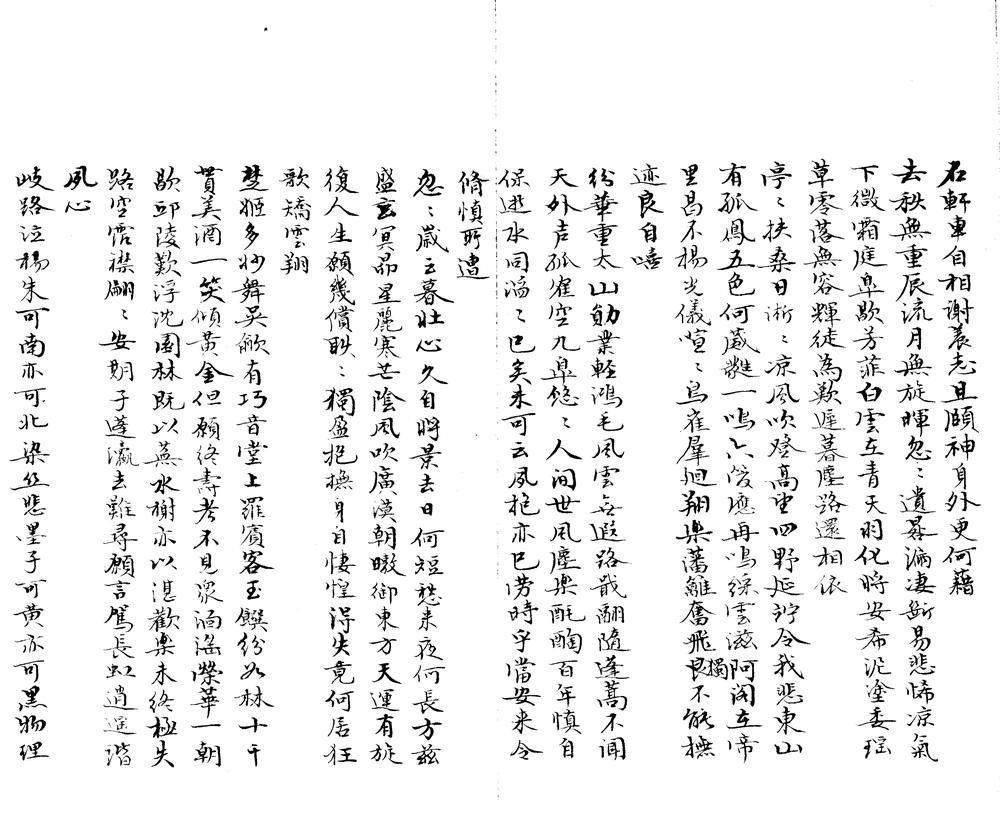 右軒車自相謝養志且頤神身外更何藉
去秋無重辰流月無旋暉忽〻遺晷漏凄斷易悲悕凉氣
下微霜庭皐歇芳菲白雲在青天羽化將安希泥塗委瑶
草零落無容輝徒為歎遲暮塵路還相依
亭〻扶桑日淅〻凉風吹登高望四野延竚令我悲東山
有孤鳳五色何葳蕤一鳴六後應再鳴綵雲滋阿阁在帝
里曷不揚光儀喧〻鳥雀羣廻翔樂藩籬奮飛良獨不能撫
迹良自嘻
紛華重太山勛業輕鴻毛風雲無遐路戢翮隨蓬蒿不闻
天外声孤寉空九皐悠〻人间世風塵樂酕醄百年慎自
保逝水同滔〻已矣未可云夙抱亦已勞時乎當安来令
脩慎所遭
忽〻歲云暮壯心久自將景去日何短愁来夜何長方茲
盛玄冥昴星麗寒芒陰風吹廣漠朝暾御東方天運有旋
復人生願幾償眽〻獨盈抱撫身自悽惶得失竟何居狂
歌矯雲翔
楚姬多妙舞吴歈有巧音堂上羅賓客玉饌紛如林十千
貰美酒一笑傾黃金但願終壽考不見衆滔滛榮華一朝
歇邱陵歎浮沈園林既以蕪水榭亦以湛歡樂未終極失
路空霑襟翩〻安期子蓬瀛去難尋願言駕長虹逍遥諧
夙心
岐路泣楊朱可南亦可北染丝悲墨子可黄亦可黑物理